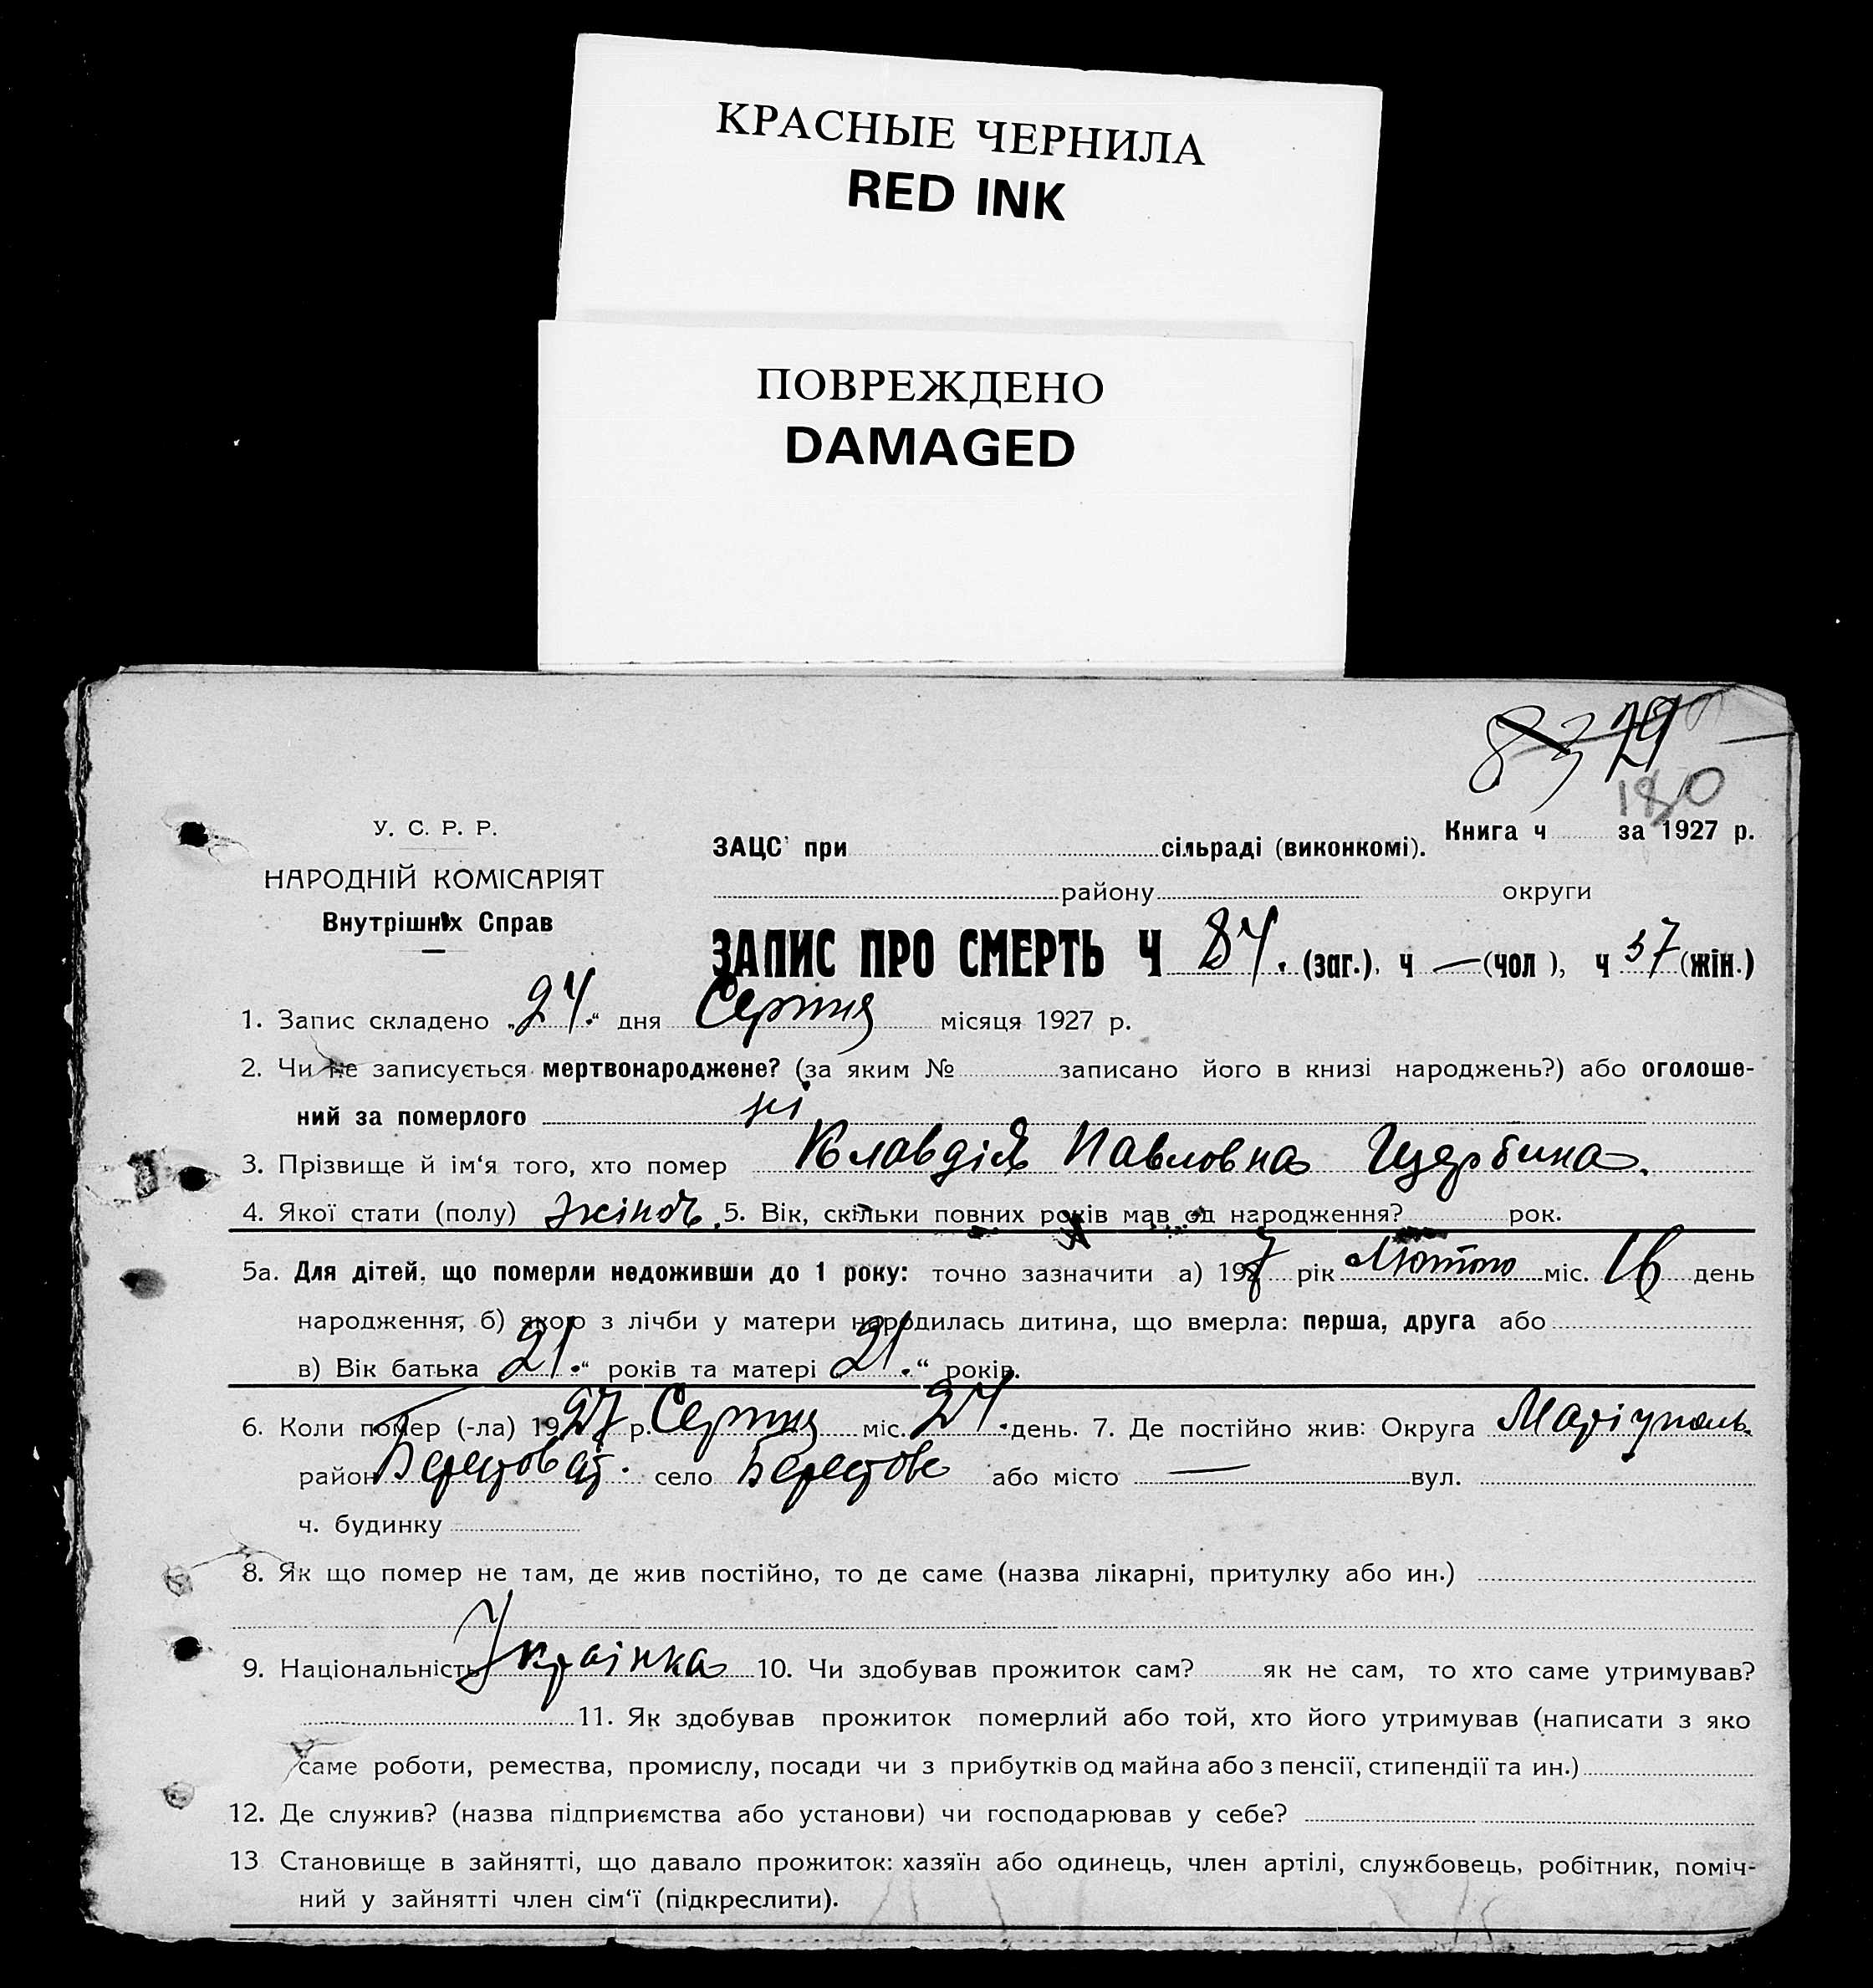 КРАСНЫЕ ЧЕРНИЛА
RED INK
ПОВРЕЖДЕНО
DAMAGED
83 79
180
У. С. Р. Р.
НАРОДНІЙ КОМІСАРІЯТ
Внутрішніх Справ
Книга ч за 1927 р.
ЗАЦС при сільраді (виконкомі).
району округи
ЗАПИС ПРО СМЕРТЬ Ч 84. (заг.), ч — (чол), ч 37 (жін.)
1. Запис складено „24.“ дня Серпня місяця 1927 р.
2. Чи не записується мертвонароджене? (за яким № записано його в книзі народжень?) або оголоше-
ний за померлого ні
3. Прізвище й ім‘я того, хто помер Клавдія Павловна Щербина.
4. Якої стати (полу) жіноч. 5. Вік, скільки повних років мав од народження? рок.
5а. Для дітей, що померли недоживши до 1 року: точно зазначити а) 1927 рік Лютого міс. 16 день
народження, б) якою з лічби у матери народилась дитина, що вмерла: перша, друга або
в) Вік батька 21.“ років та матері 21.“ років.
6. Коли помер (-ла) 1927 р. Серпня міс. 24. день. 7. Де постійно жив: Округа Маріуполь.
район Берестоват. село Берестове або місто — вул.
ч. будинку
8. Як що помер не там, де жив постійно, то де саме (назва лікарні, притулку або ин.)
9. Національність Украінка 10. Чи здобував прожиток сам? як не сам, то хто саме утримував?
11. Як здобував прожиток померлий або той, хто його утримував (написати з яко
саме роботи, ремества, промислу, посади чи з прибутків од майна або з пенсії, стипендії та ин.)
12. Де служив? (назва підприємства або установи) чи господарював у себе?
13 Становище в зайнятті, що давало прожиток: хазяїн або одинець, член артілі, службовець, робітник, поміч-
ний у зайнятті член сім‘ї (підкреслити).